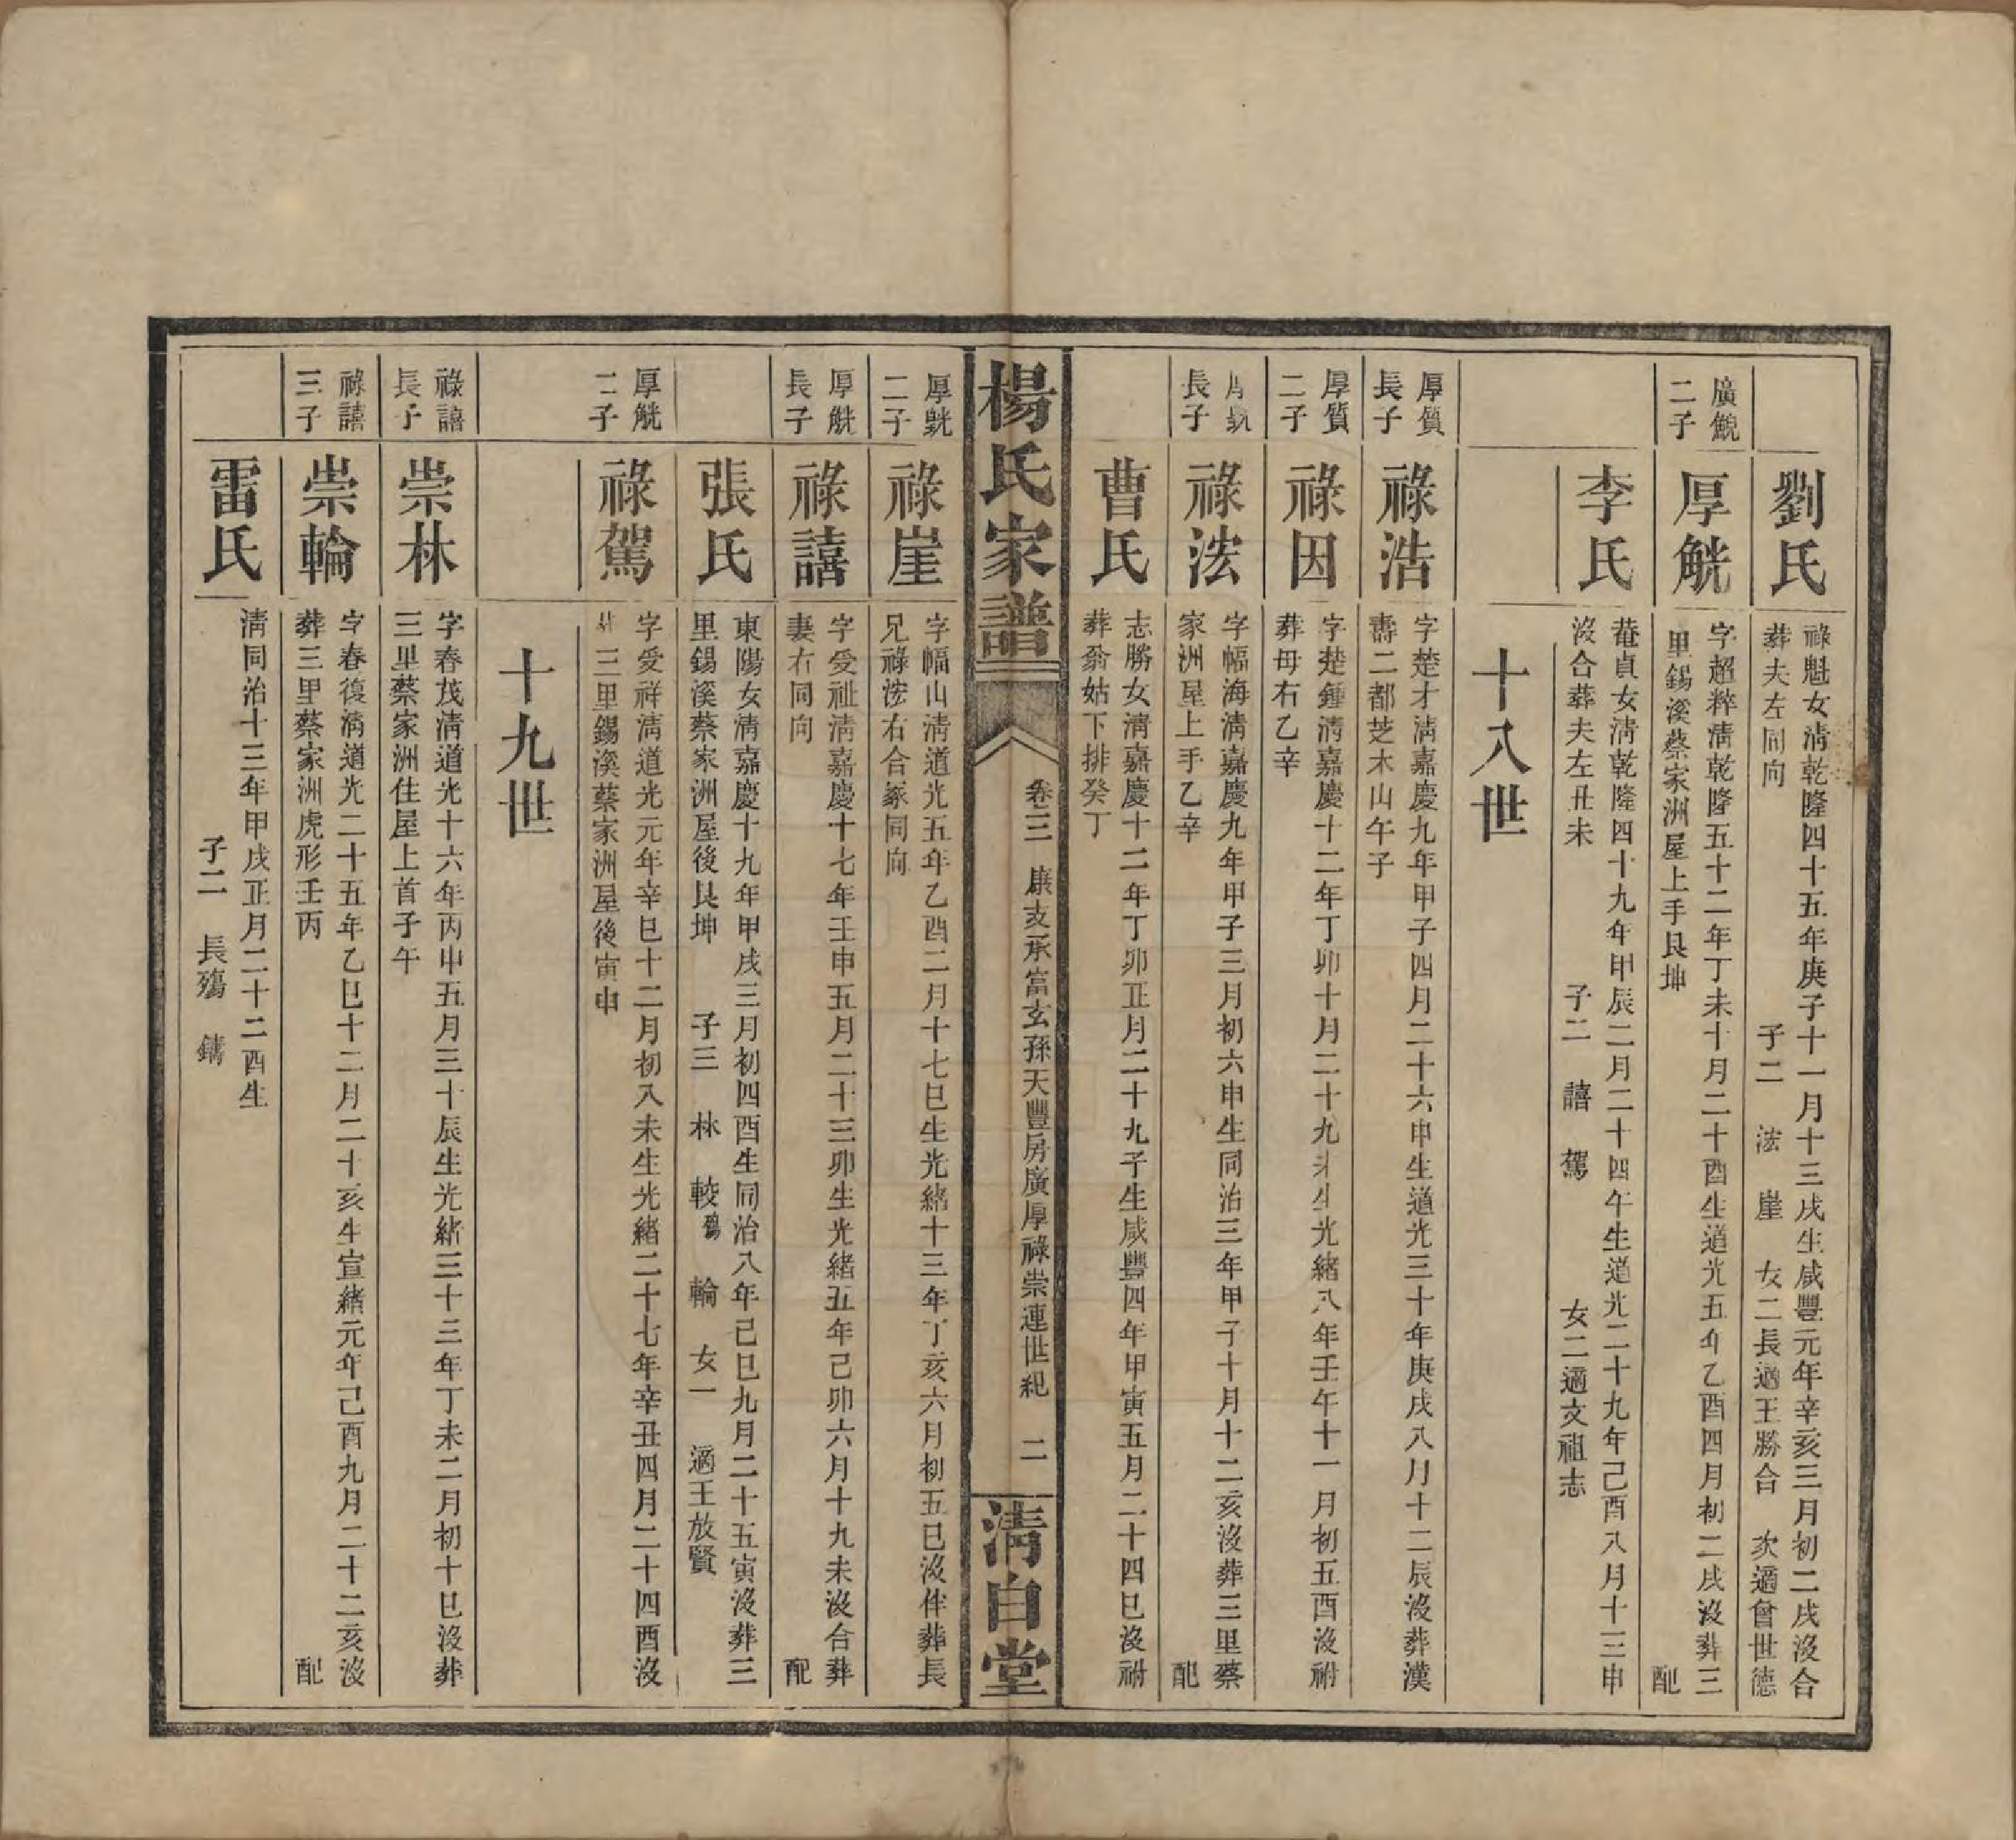 劉氏
祿魁女淸乾隆四十五年庚子十一月十三戌生咸豐元年辛亥三月初二戌沒合
葬夫左同向 子二 浤 崖 女二長適王勝合 次適曾世德
廣觬
二子
厚觥
字超粹淸乾隆五十二年丁未十月二十酉生道光五年乙酉四月初二戌沒葬三
里錫溪蔡家洲屋上手艮坤 配
李氏
菴貞女淸乾隆四十九年甲辰二月二十四午生道光二十九年己酉八月十三申
沒合葬夫左丑未 子二 譆 駕 女二適文祖志
十八世
厚質
長子
祿浩
字楚才淸嘉慶九年甲子四月二十六申生道光三十年庚戌八月十二辰沒葬漢
壽二都芝木山午子
厚質
二子
祿因
字楚鍾淸嘉慶十二年丁卯十月二十九未生光緒八年壬午十一月初五酉沒祔
葬母右乙辛
厚
長子
祿浤
字幅海淸嘉慶九年甲子三月初六申生同治三年甲子十月十二亥沒葬三里蔡
家洲屋上手乙辛 配
曹氏
志勝女淸嘉慶十二年丁卯正月二十九子生咸豐四年甲寅五月二十四巳沒祔
葬翁姑下排癸丁
楊氏家譜
卷三 康支承富玄孫天豐房廣厚祿崇連世紀 二
淸白堂
厚
二子
祿崖
字幅山淸道光五年乙酉二月十七巳生光緒十三年丁亥六月初五巳沒伴葬長
兄祿浤右合冢同向
厚觥
長子
祿譆
字受祉淸嘉慶十七年壬申五月二十三卯生光緒五年己卯六月十九未沒合葬
妻右同向 配
張氏
東陽女淸嘉慶十九年甲戌三月初四酉生同治八年己巳九月二十五寅沒葬三
里錫溪蔡家洲屋後艮坤 子三 林 較殤 輪 女一 適王放賢
厚觥
二子
祿駕
字受祥淸道光元年辛巳十二月初八未生光緒二十七年辛丑四月二十四酉沒
葬三里錫溪蔡家洲屋後寅申
十九世
祿譆
長子
崇林
字春茂淸道光十六年丙申五月三十辰生光緒三十三年丁未二月初十巳沒葬
三里蔡家洲住屋上首子午
祿譆
三子
崇輪
字春復淸道光二十五年乙巳十二月二十亥生宣緒元年己酉九月二十二亥沒
葬三里蔡家洲虎形壬丙 配
雷氏
淸同治十三年甲戌正月二十二酉生
子二 長殤 鏞